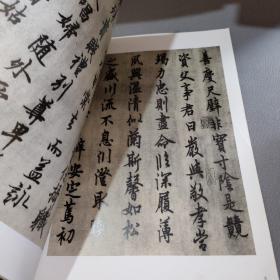 善慶尺璧非寶寸陰是競
資父事君曰嚴與敬孝當
竭力忠則盡命臨深履薄
夙興溫清似蘭斯馨如松
之盛川流不息淵澄取
辭安定篤初
而益詠
別尊卑
唱婦隨外
姑